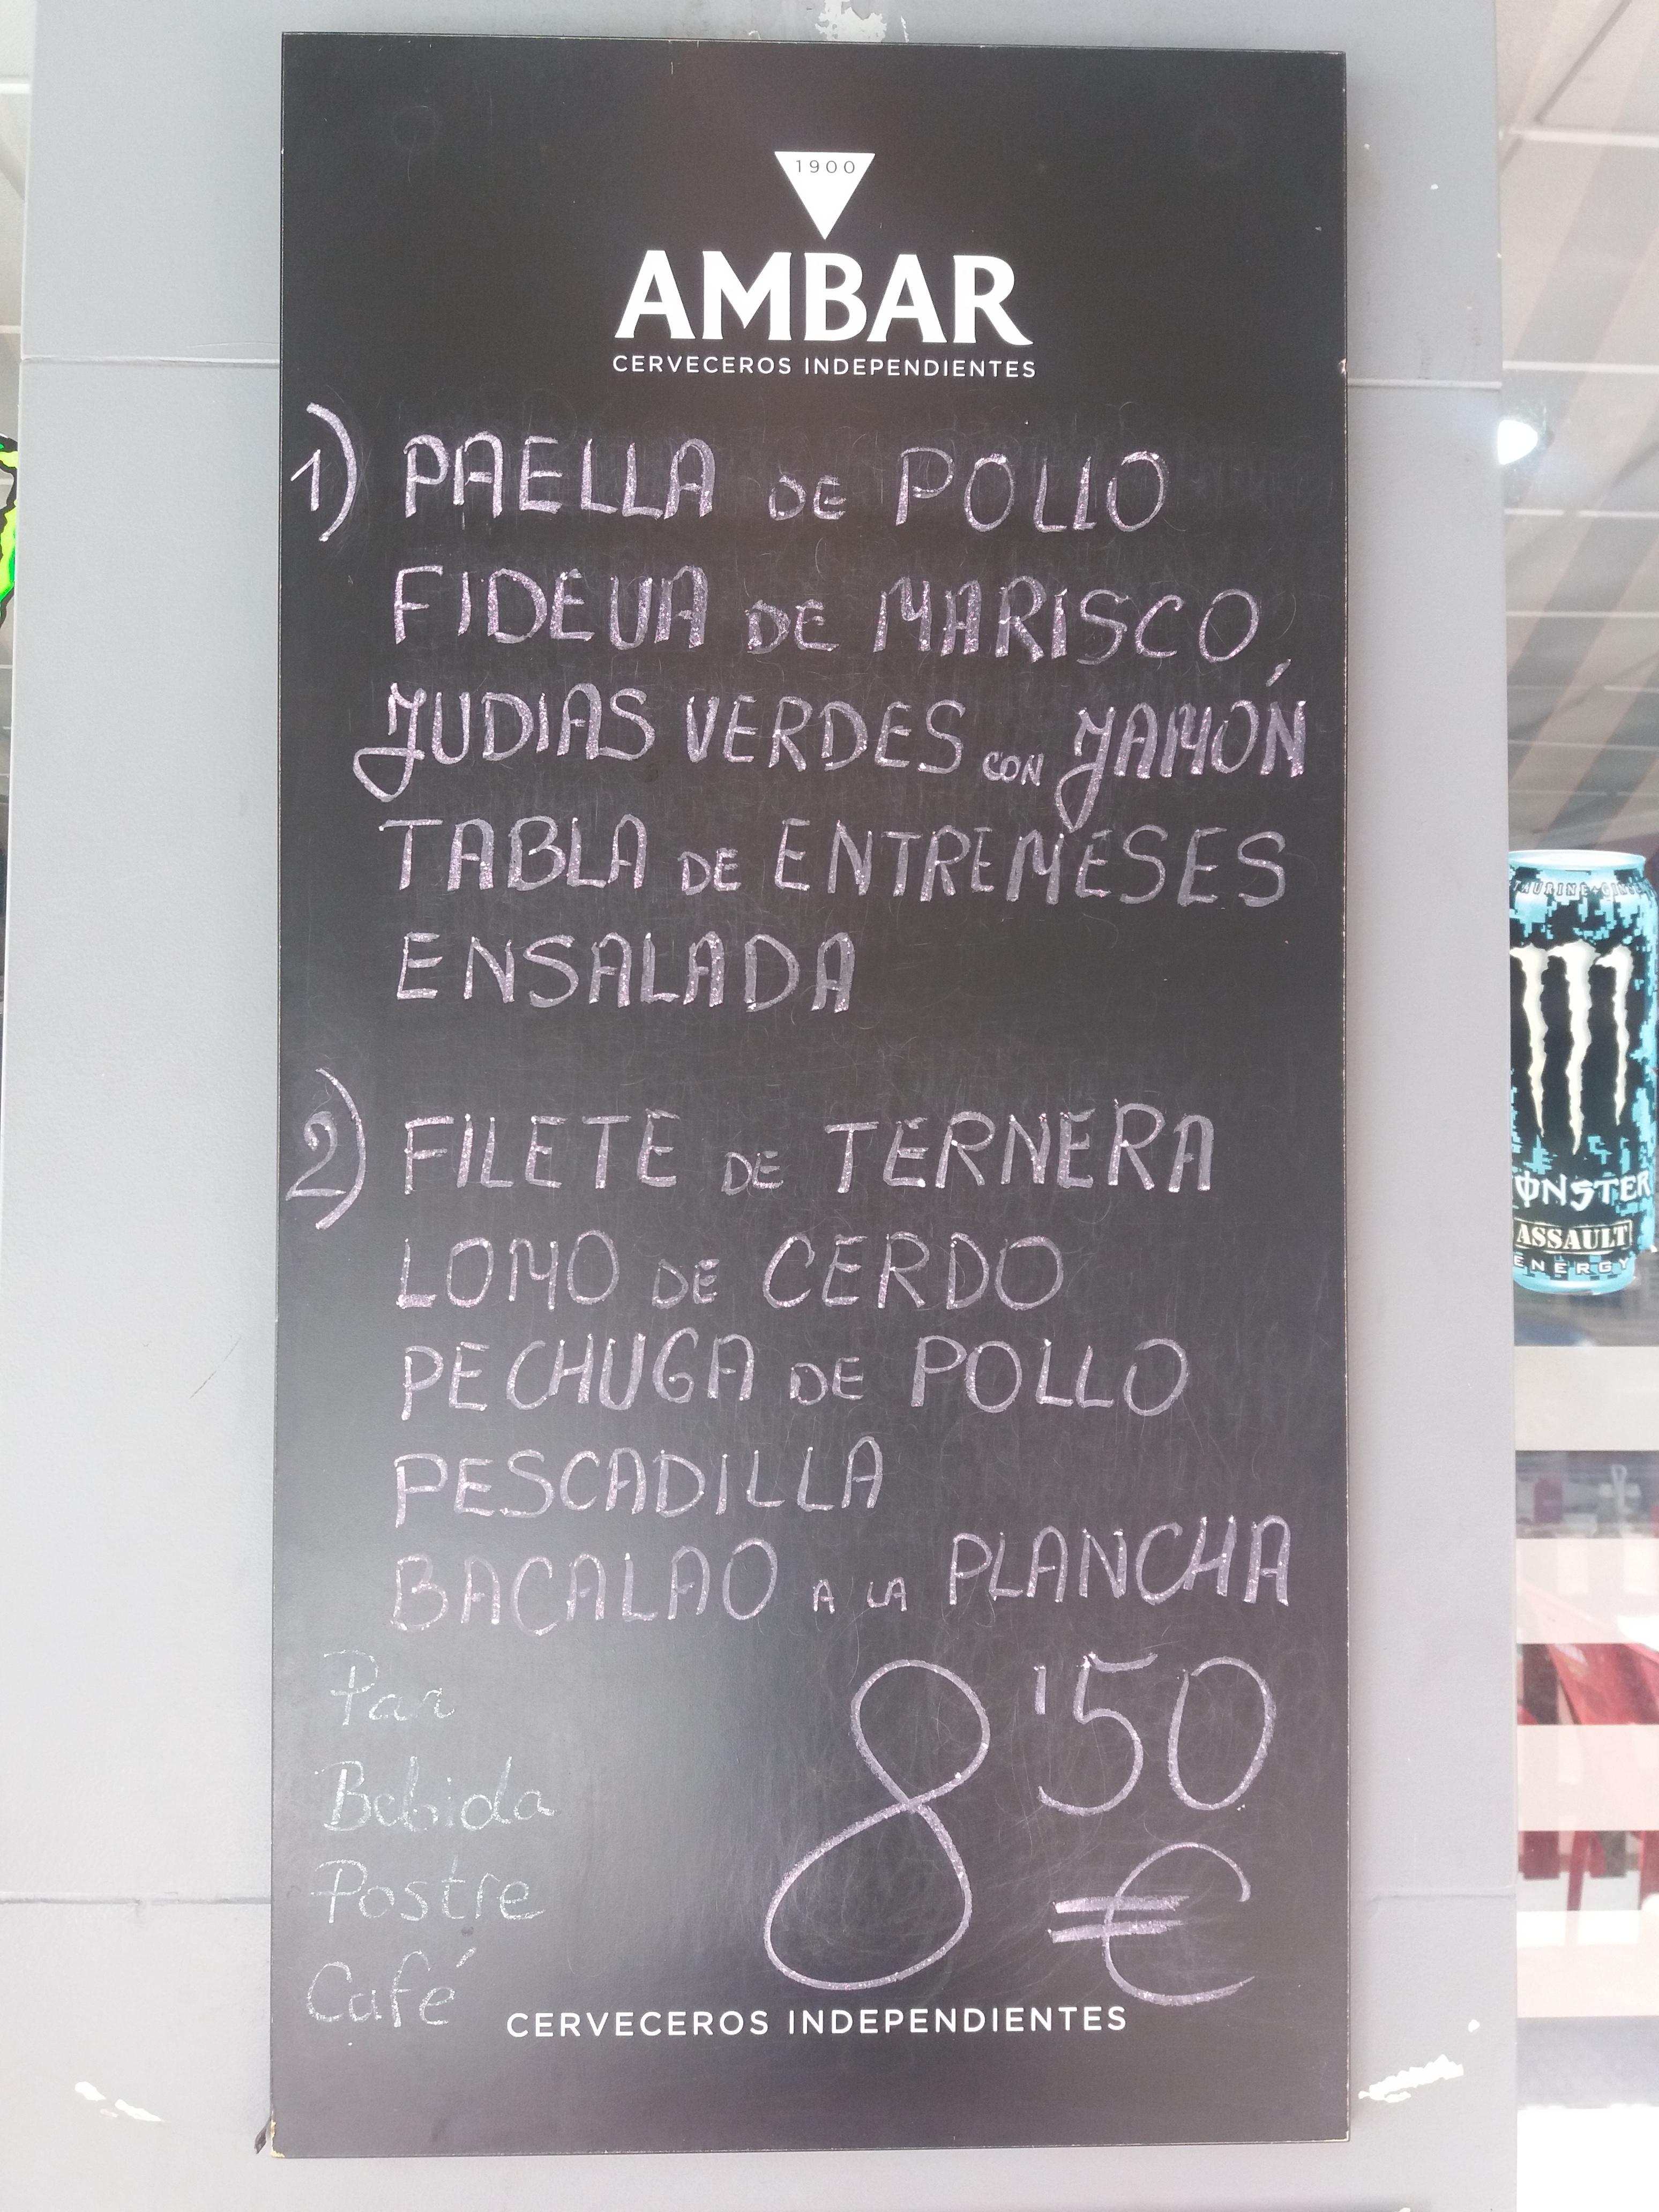 1900
AMBAR
CERVECEROS INDEPENDIENTES
1) PAELLA DE POLLO
FIDEUA DE MARISCO
JUDIAS VERDES CON JAMÓN
TABLA DE ENTREMESES
ENSALADA
2) FILETE DE TERNERA
LOMO DE CERDO
PECHUGA DE POLLO
PESCADILLA
BACALAO A LA PLANCHA
Pan
Bebida
Postre
Café
8'50
€
CERVECEROS INDEPENDIENTES
MONSTER
ASSAULT
ENERGY